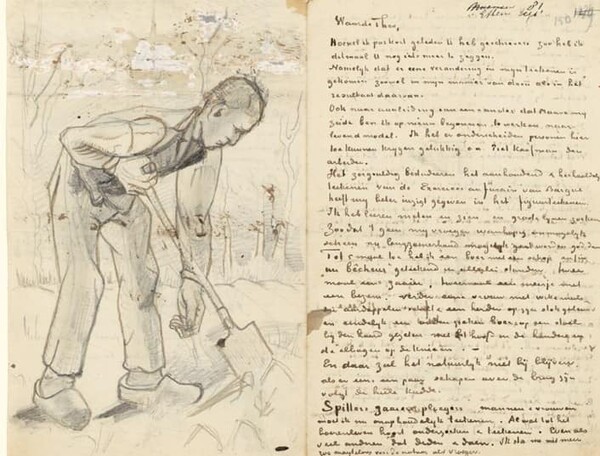 Etten Sept
81.
150
Waarde Theo,
Hoewel ik pas kort geleden U heb geschreven zoo heb ik
ditmaal U nog iets meer te zeggen.
Namelijk dat er eene verandering in mijn teekenen is
gekomen zoowel in mijn manier van doen als in het
resultaat daarvan.
Ook naar aanleiding van een & ander dat Mauve mij
zeide ben ik op nieuw begonnen te werken naar
levend model. Ik heb er onderscheiden personen hier
toe kunnen krijgen gelukkig o.a. Piet Kaufman den
arbeider.
Het zorgvuldig bestuderen het aanhoudend & herhaaldelijk
teekenen van de Exercices au fusain van Bargue
heeft mij beter inzigt gegeven in het figuurteekenen.
Ik heb leeren meten en zien en groote lijnen zoeken
Zoodat 't geen mij vroeger wanhopig onmogelijk
scheen nu langzamerhand mogelijk gaat worden god dank.
Tot 5 maal toe heb ik een boer met een schop enfin
un bêcheur geteekend in allerlei standen, twee
maal een zaaier, tweemaal een meisje met
een bezem. Verder eene vrouw met witte muts
die aardappelen schilt & een herder op zijn stok geleund
en eindelijk een ouden zieken boer op een stoel
bij den haard gezeten met het hoofd in de handen en
de elbogen op de knieën. –
En daar zal het natuurlijk niet bij blijven,
als er eens een paar schapen over de brug zijn
volgt de heele kudde.
Spitters, zaaiers, ploegers mannen & vrouwen
moet ik nu onophoudelijk teekenen. Al wat tot het
boerenleven hoort onderzoeken & teekenen. Evenals
veel anderen dat deden & doen. Ik sta nu niet meer
zoo magteloos voor de natuur als vroeger.